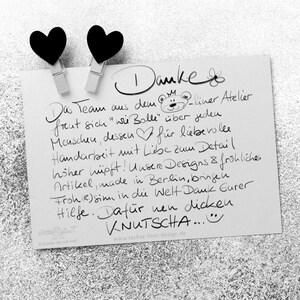 Danke
Das Team aus dem -liner Atelier
freut sich "wie Bolle" über jeden
Menschen, dessen ♡ für liebevolle
Handarbeit mit Liebe zum Detail
höher hüpft! Unsere Designs & fröhliches
Artikel, made in Berlin, bringen
Froh(e)sinn in die Welt Dank Eurer
Hilfe. Dafür nen dicken
KNUTSCHA...